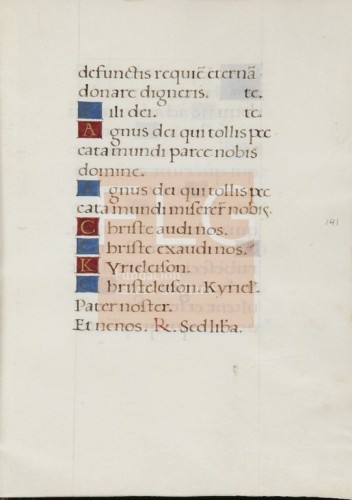 defunctis requiē eternā
donare digneris. te.
Fili dei. te.
Agnus dei qui tollis pec
cata mundi parce nobis
domine.
Agnus dei qui tollis pec
cata mundi miserer̄ nobis.
Christe audi nos.
Christe exaudi nos.
Kyrieleison.
Christeleison. Kyriel̄.
Pater noster.
Et ne nos. R. Sed lib̄a.
141
FLG
Fundación